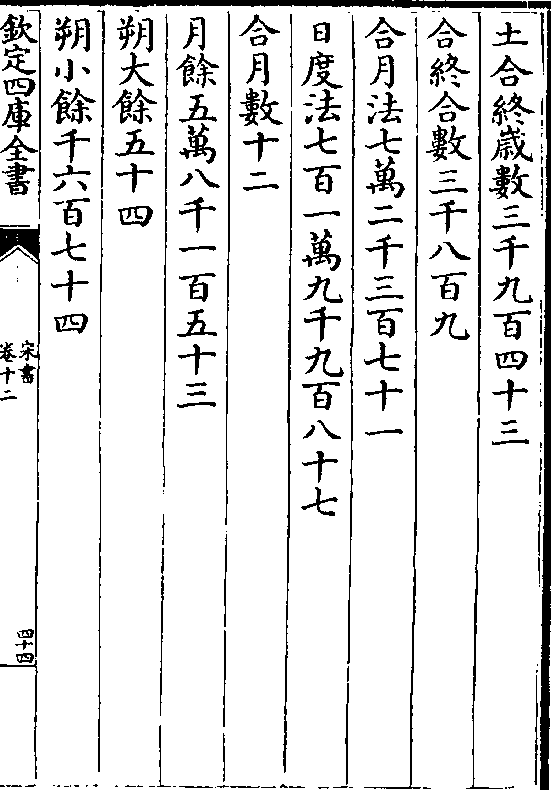 土合終歲數三千九百四十三
合終合數三千八百九
合月法七萬二千三百七十一
日度法七百一萬九千九百八十七
合月數十二
月餘五萬八千一百五十三
朔大餘五十四
朔小餘千六百七十四
欽定四庫全書
宋書
卷十二
四十四